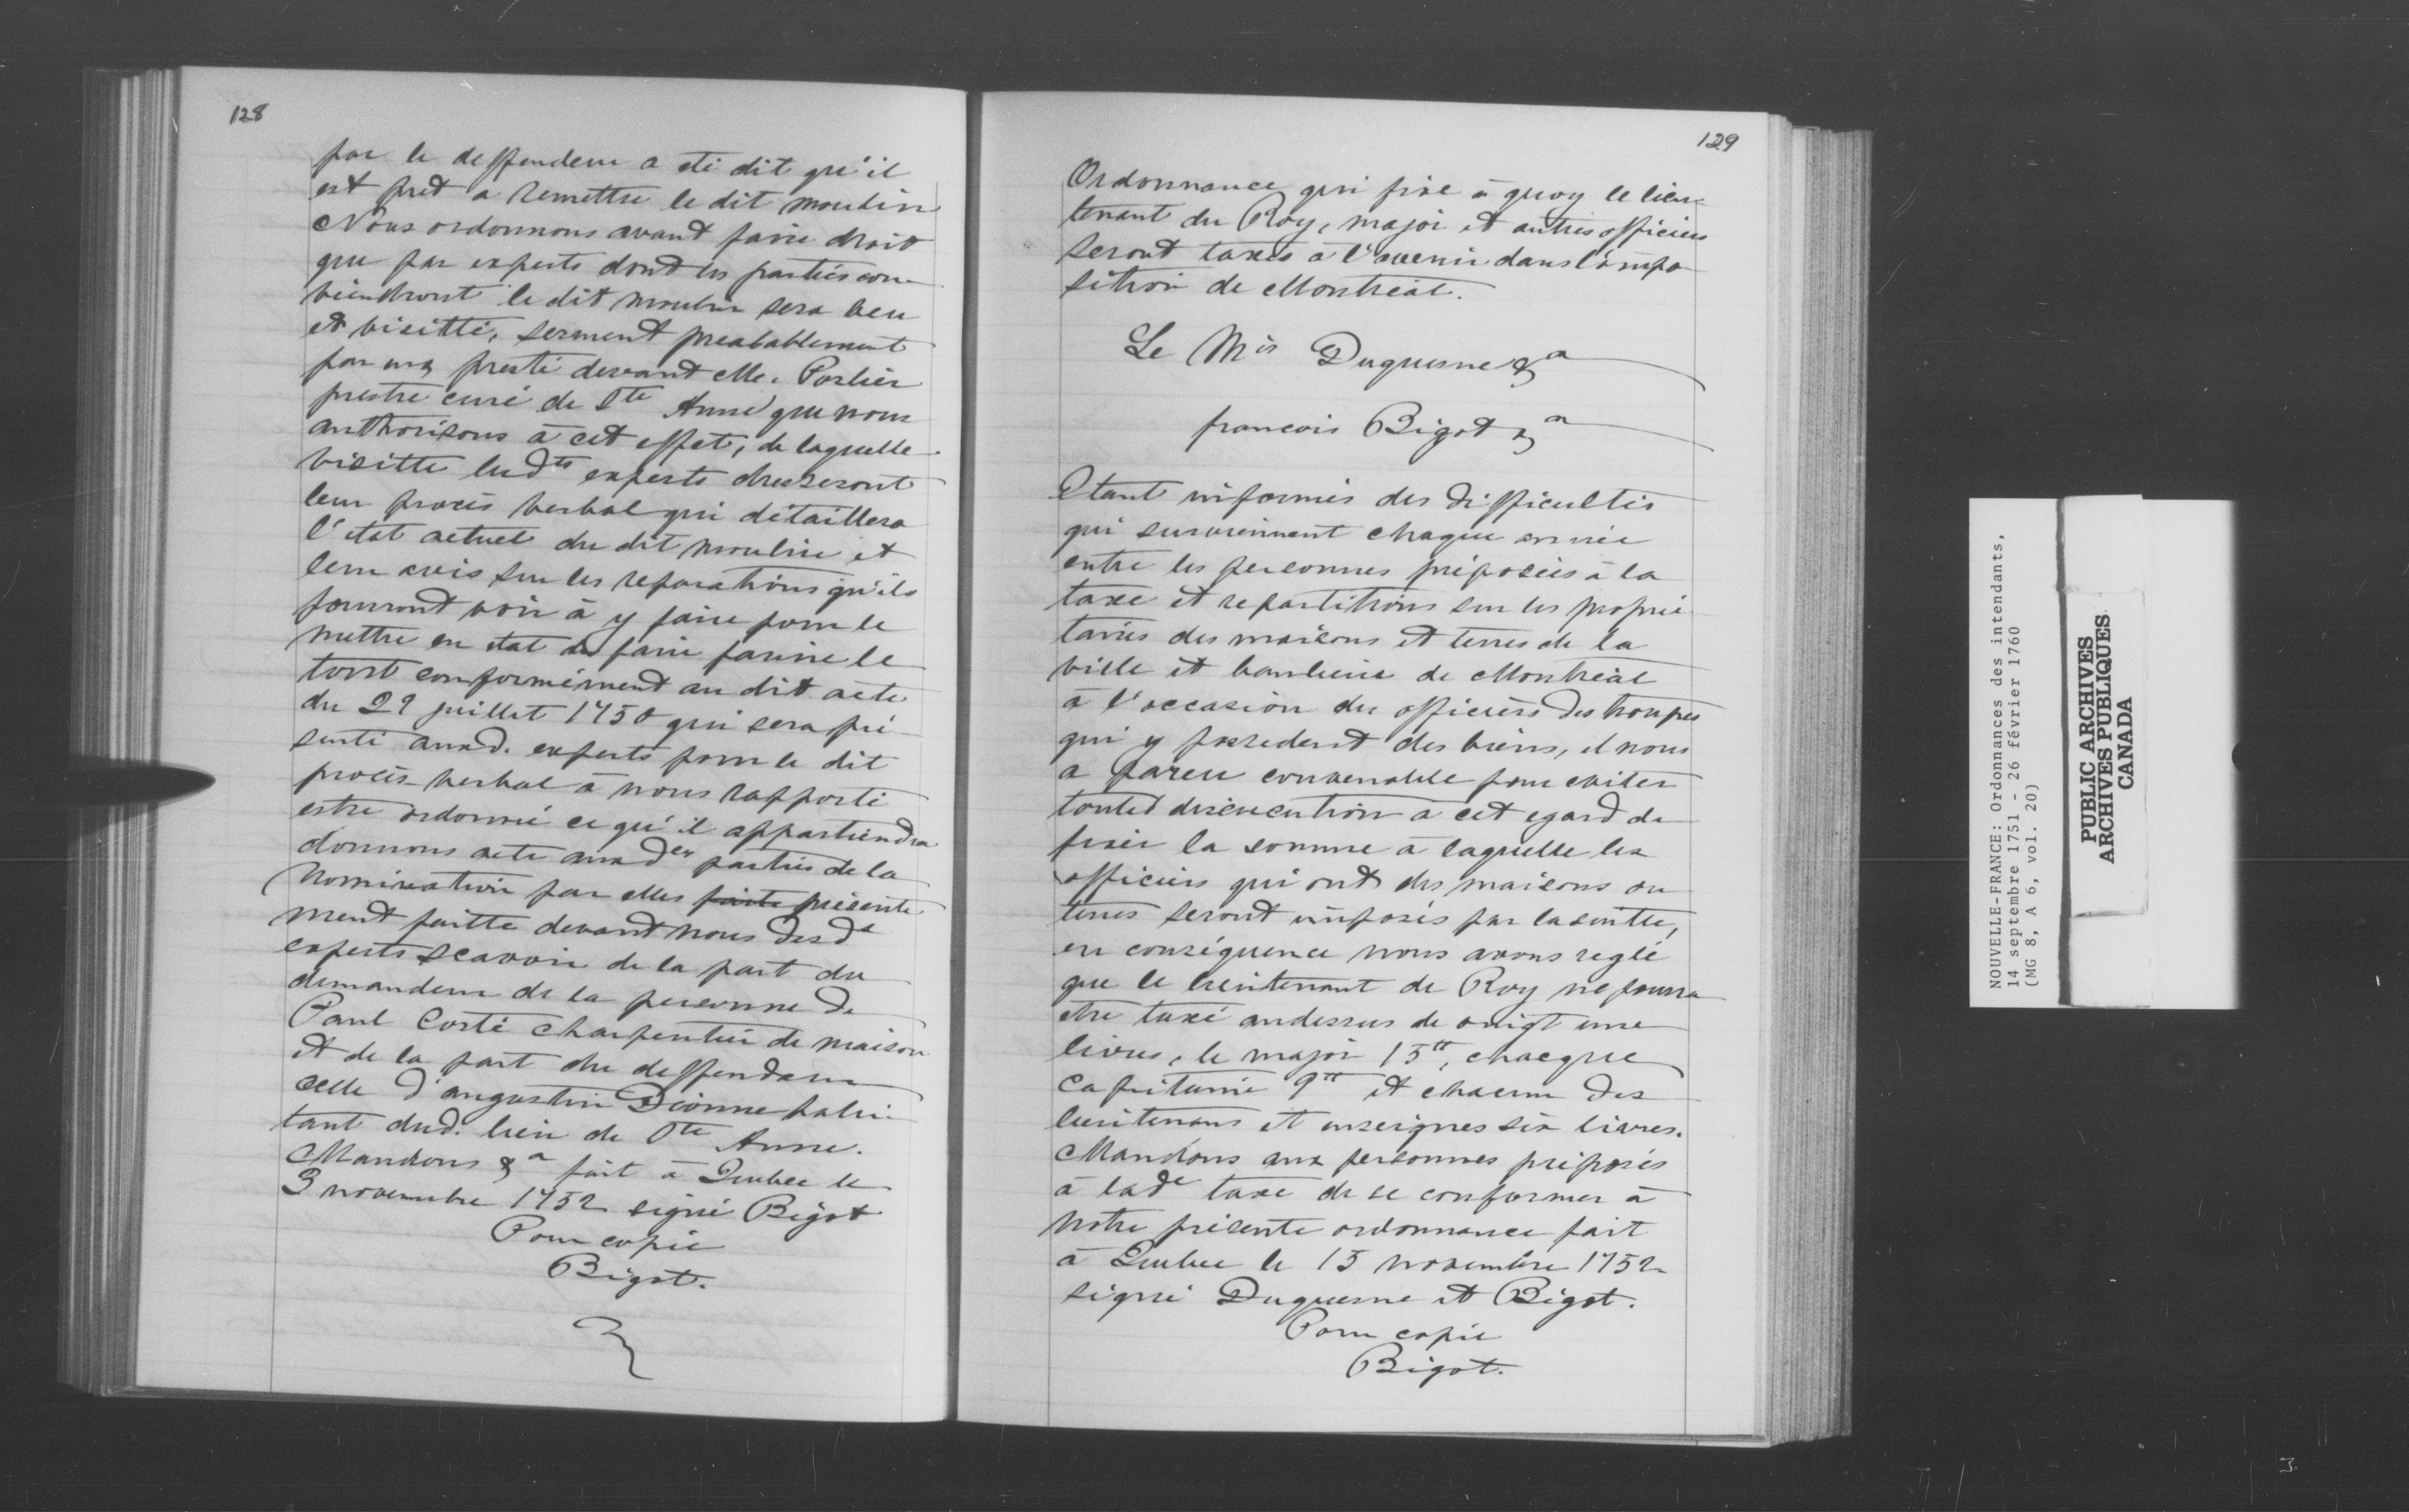 128
par le deffendeur a eté dit qu'il
est pret a remettre le dit moulin
Nous ordonnons avant faire droit
que par experts dont les parties con-
viendront le dit moulin sera veu
et visitté, serment prealablement
par eux presté devant Me. Porlier
prestre curé de Ste Anne que nous
authorisons à cet effet, de laquelle
visitte lesdts experts dresseront
leur procés verbal qui détaillera
l'état actuel du dit moulin et
leur avis sur les reparations qu'ils
pourront voir à y faire pour le
mettre en état de faire farine le
tout conformément au dit acte
du 29 juillet 1750 qui sera pré-
senté auxd. experts pour le dit
procès-verbal à nous rapporté
estre ordonné ce qu'il appartiendra
donnons acte auxdes parties de la
nomination par elles faite présente
ment faitte devant nous desds
experts scavoir de la part du
demandeur de la personne de
Paul Costé charpentier de maison
et de la part du deffendeur
celle d'augustin Dionne habi-
tant dud. lieu de Ste Anne.
Mandons &a fait à Quebec le
3 novembre 1752 signé Bigot
Pour copie
Bigot.
129
Ordonnance qui fixe à quoy le lieu-
tenant du Roy, major et autres officiers
seront taxés à l'avenir dans l'impo-
sition de Montréal.
Le Mis Duquesne &a
francois Bigot &a
Etant informés des difficultés
qui surviennent chaque année
entre les personnes préposées à la
taxe et repartitions sur les proprié
taires des maisons et terres de la
ville et banlieue de Montréal
à l'occasion des officiers des troupes
qui y possedent des biens, il nous
a pareu convenable pour eviter
toutes discucution à cet egard de
fixer la somme à laquelle les
officiers qui ont des maisons ou
terres seront imposés par la suitte,
en conséquence nous avons reglé
que le lieutenant de Roy ne pourra
etre taxé audessus de vingt une
livres, le major 15tt, chacque
capitaine 9tt et chacun des
lieutenans et enseignes six livres.
Mandons aux personnes préposés
à lade taxe de se conformer à
notre présente ordonnance fait
à Quebec le 15 novembre 1752
signé Duquesne et Bigot.
Pour copie
Bigot.
NOUVELLE-FRANCE: Ordonnances des intendants,
14 septembre 1751 - 26 février 1760
(MG 8, A 6, vol. 20)
PUBLIC ARCHIVES
ARCHIVES PUBLIQUES
CANADA